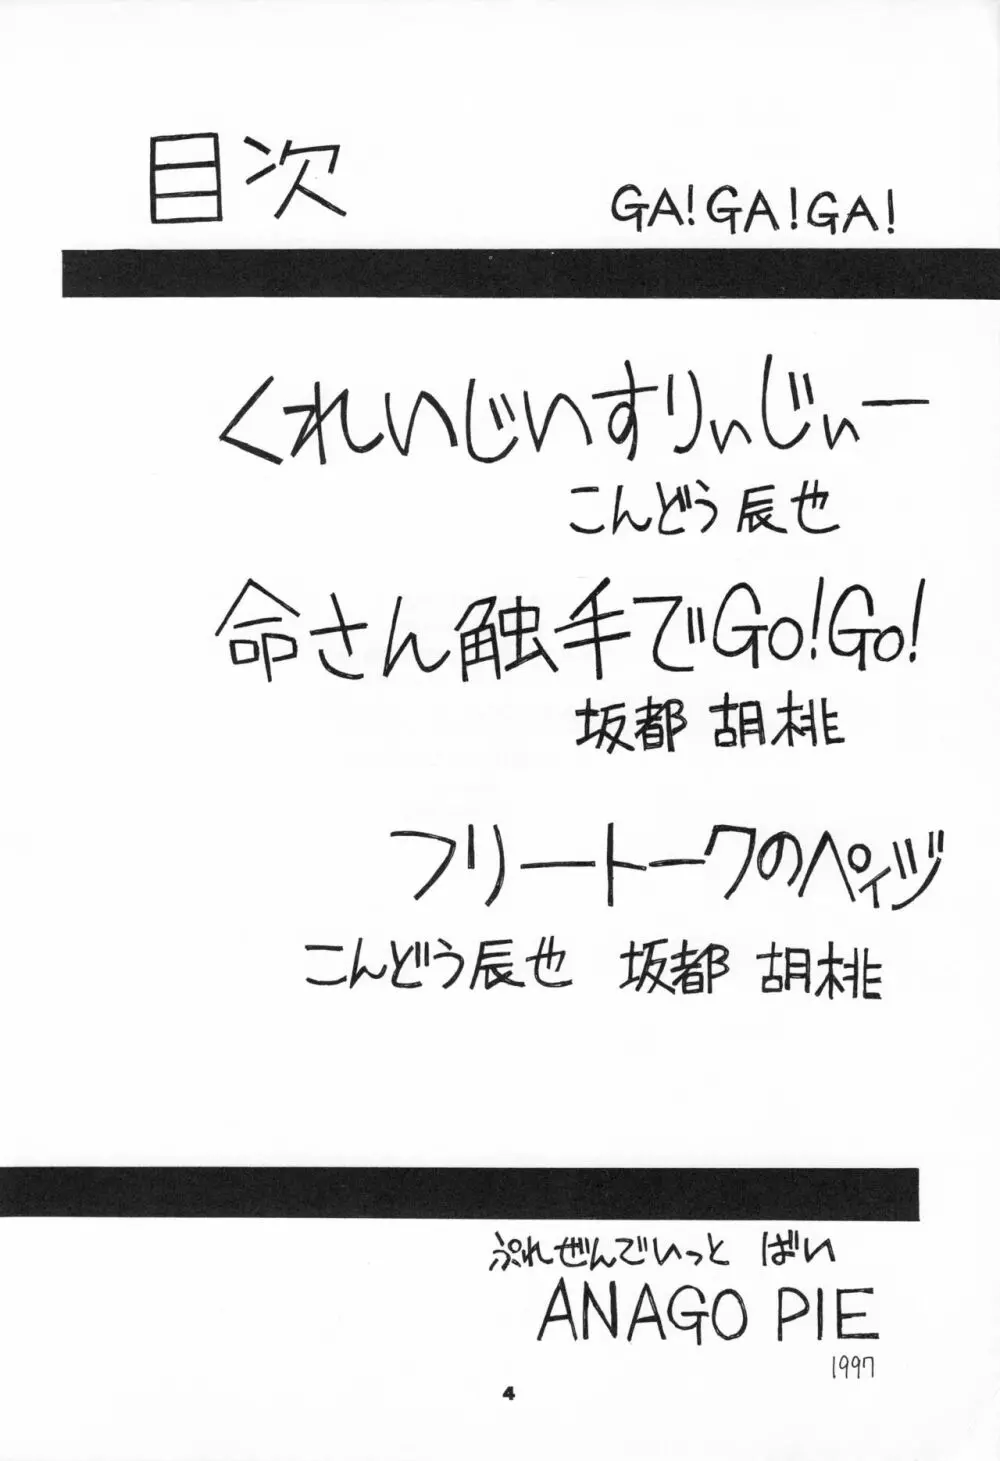 目次
GA!GA!GA!
くれいじいすりぃじぃー
こんどう辰也
命さん触手でGo!Go!
坂都 胡桃
フリートークのペイヂ
こんどう辰也 坂都 胡桃
ぷれぜんでいっと ばい
ANAGO PIE
1997
4